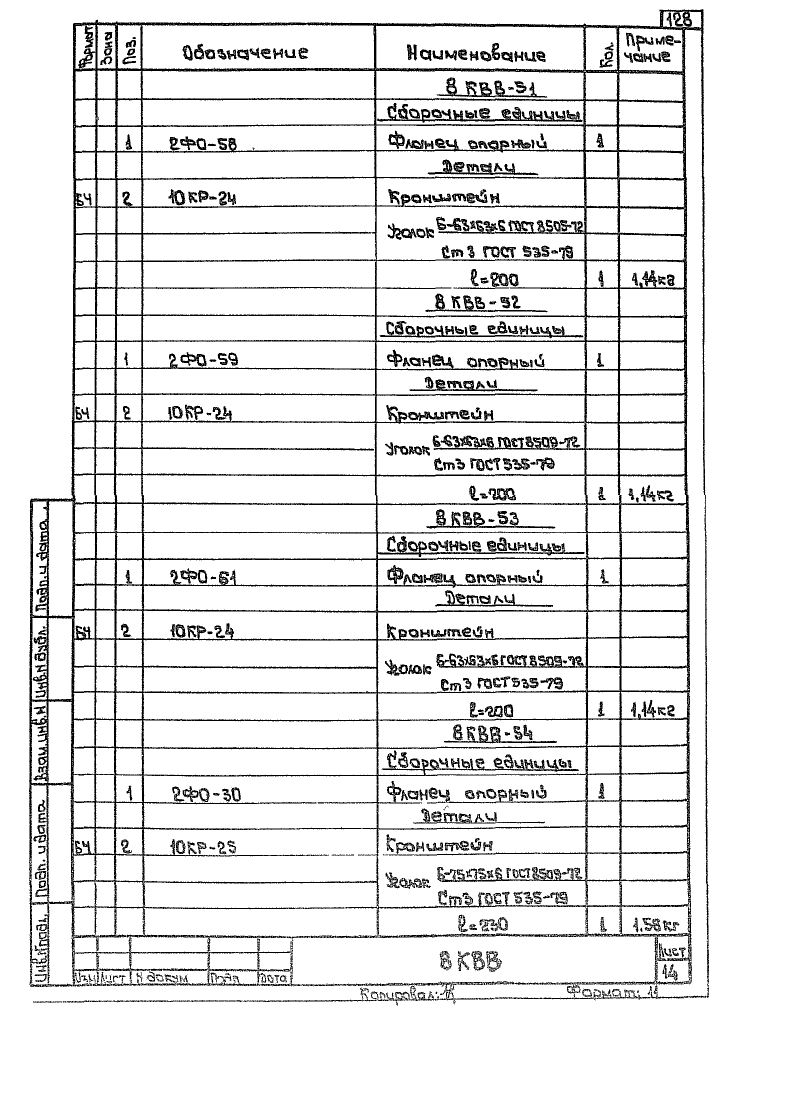 128
Формат Зона Поз. Обозначение Наименование Кол. Примечание
8 КВВ-51
Сборочные единицы
1 2ФО-58 Фланец опорный 1
Детали
БЧ 2 10КР-24 Кронштейн
Уголок Б-63х63х6 ГОСТ 8509-72
Ст 3 ГОСТ 535-79
ℓ=200 1 1,14кг
8 КВВ-52
Сборочные единицы
1 2ФО-59 Фланец опорный 1
Детали
БЧ 2 10КР-24 Кронштейн
Уголок Б-63х63х6 ГОСТ 8509-72
Ст3 ГОСТ 535-79
ℓ=200 1 1,14кг
8 КВВ-53
Сборочные единицы
1 2ФО-61 Фланец опорный 1
Детали
БЧ 2 10КР-24 Кронштейн
Уголок Б-63х63х6 ГОСТ 8509-72
Ст3 ГОСТ 535-79
ℓ=200 1 1,14кг
8 КВВ-54
Сборочные единицы
1 2ФО-30 Фланец опорный 1
Детали
БЧ 2 10КР-25 Кронштейн
Уголок Б-75х75х6 ГОСТ 8509-72
Ст3 ГОСТ 535-79
ℓ=230 1 1.58кг
Инв.№подл. Подп. и дата Взам.инв.№ Инв.№ дубл. Подп. и дата
Изм Лист № докум Подп Дата
8 КВВ
Лист
14
Копировал: Формат: 11